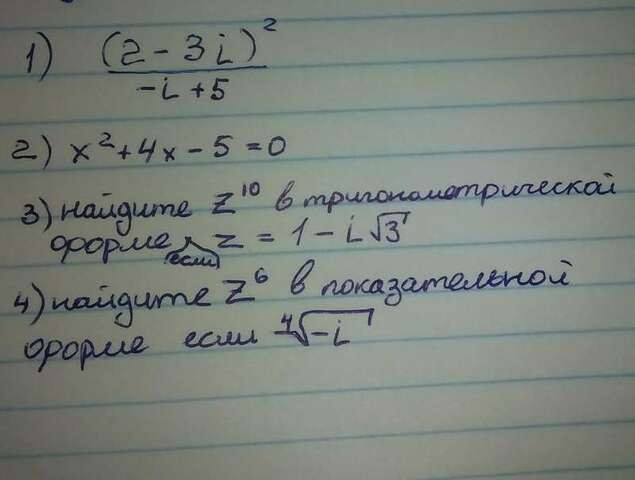 1) (2 - 3i)² / -i + 5
2) x² + 4x - 5 = 0
3) найдите z¹⁰ в тригонометрической
форме, если z = 1 - i√3
4) найдите z⁶ в показательной
форме если ⁴√-i